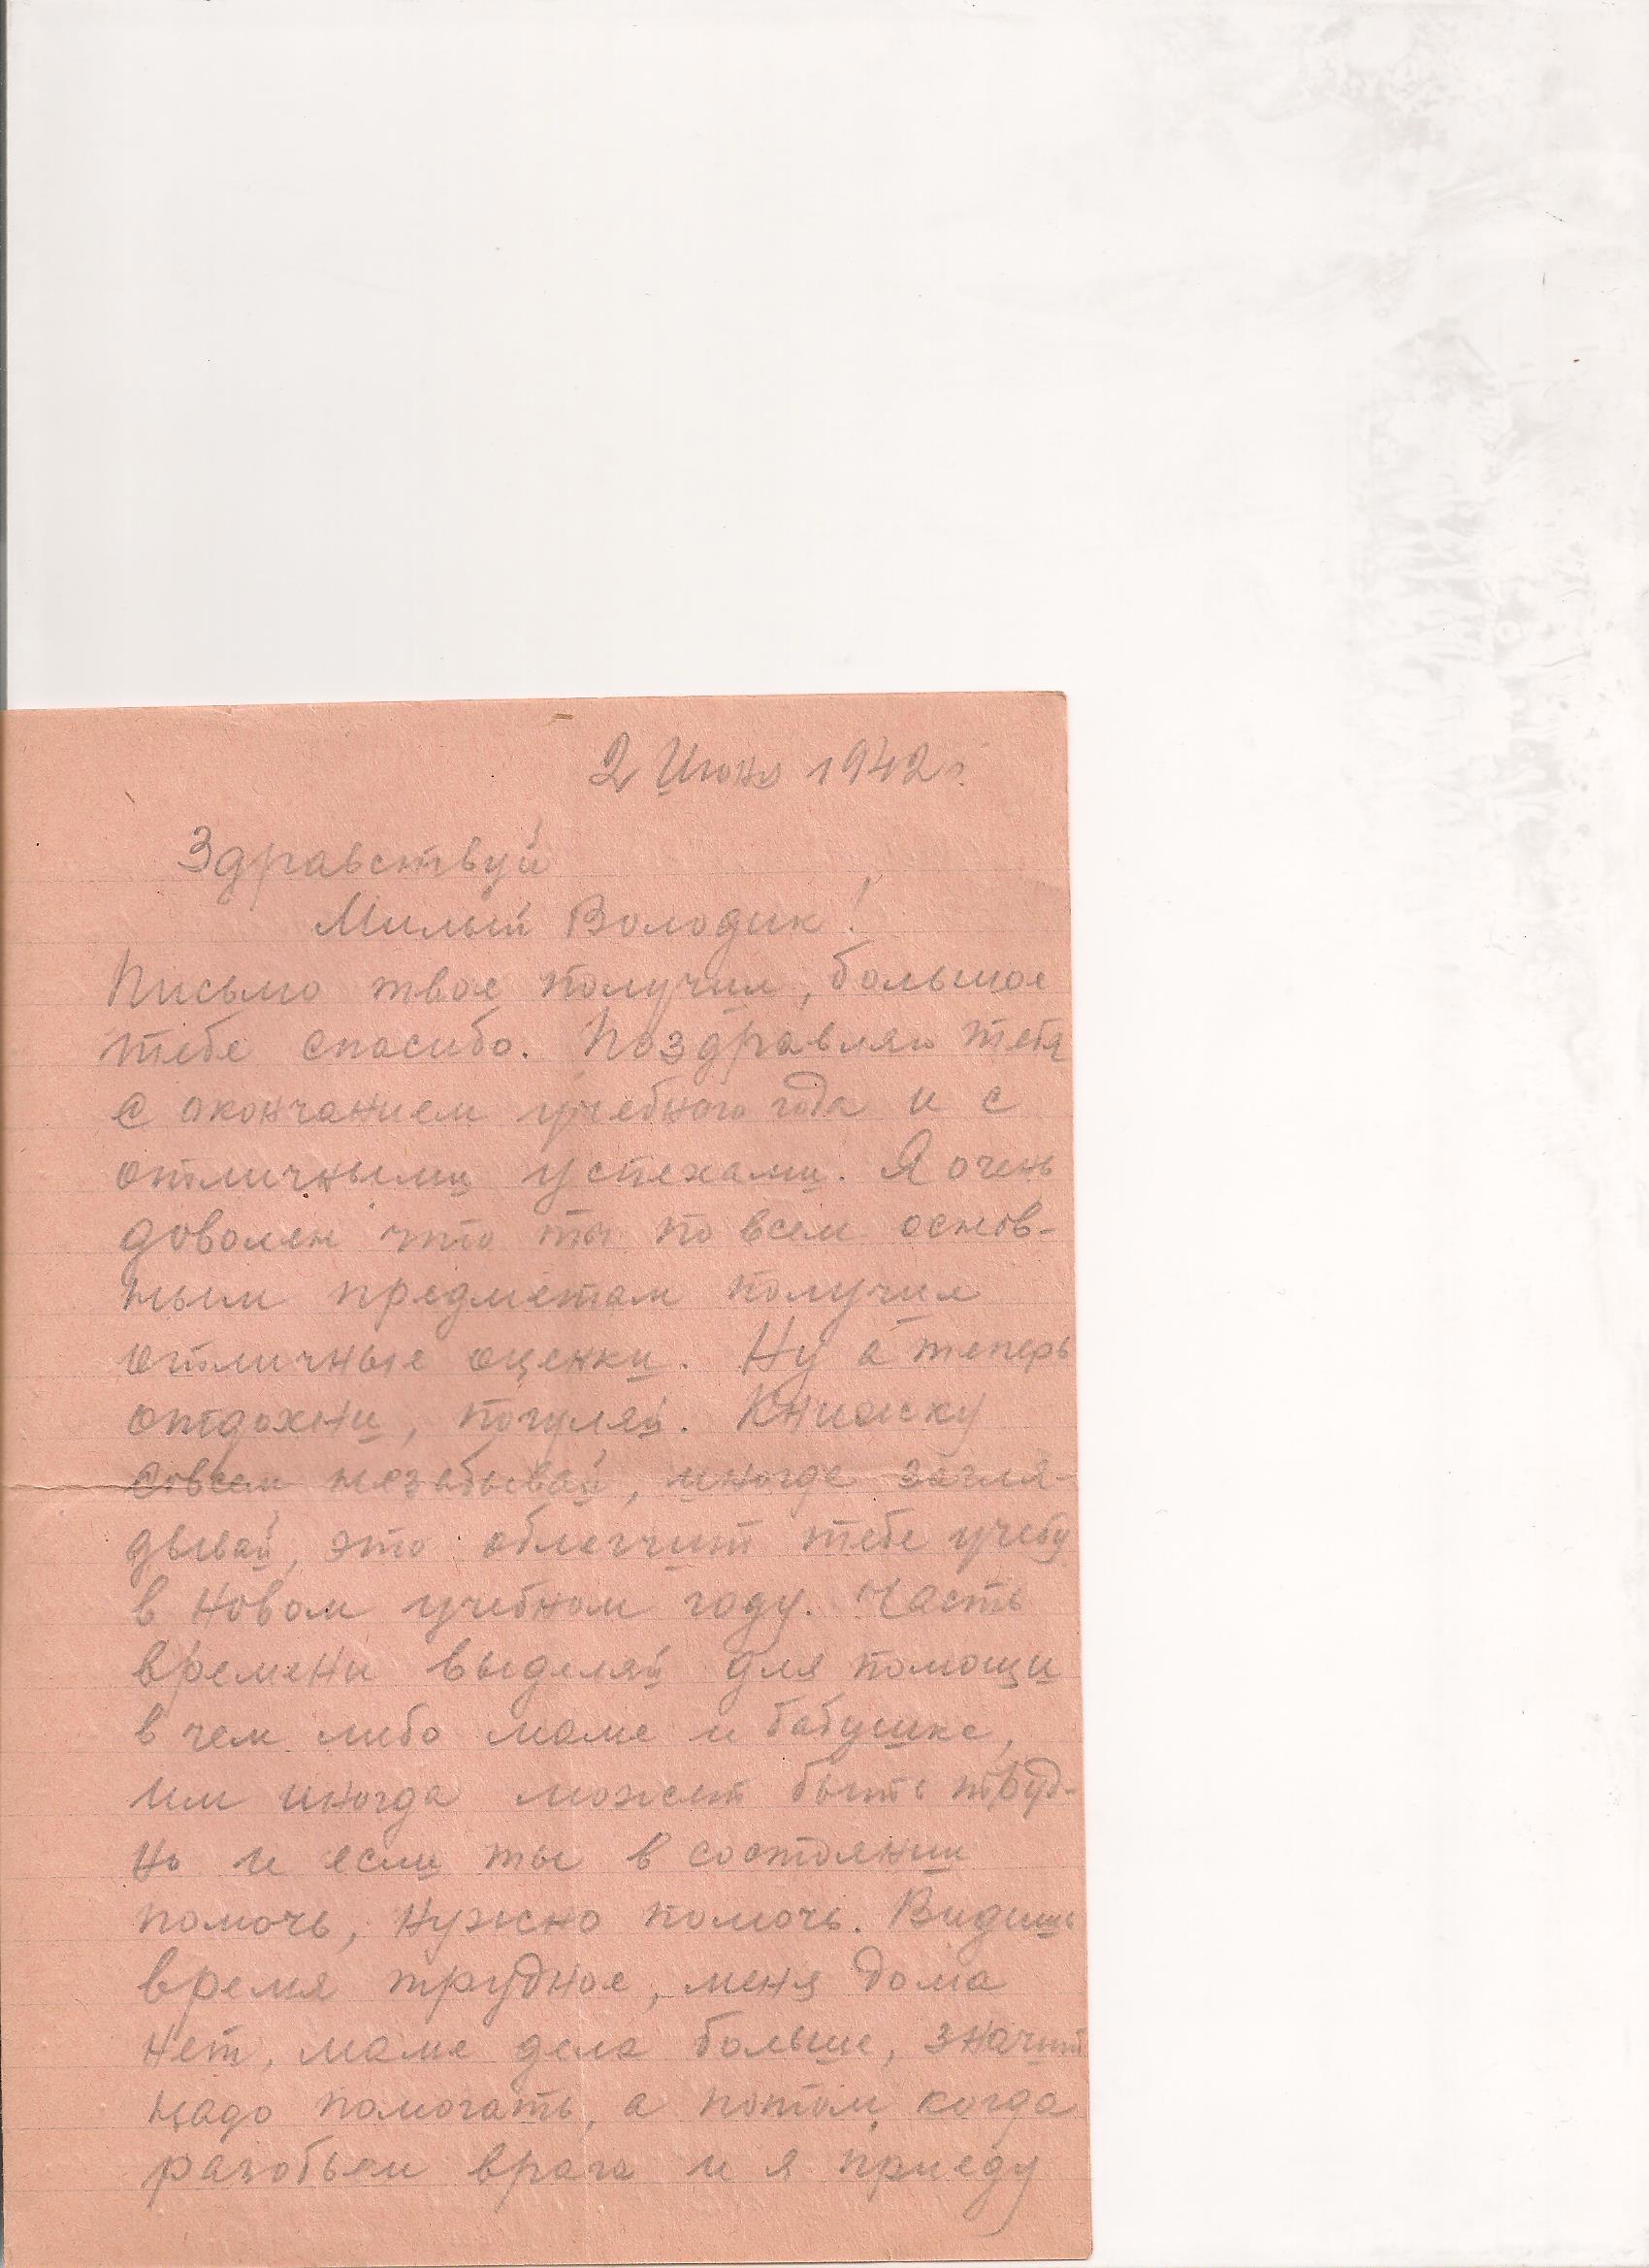 2 Июня 1942 г.
Здравствуй
Милый Володик!
Письмо твое получил, большое
тебе спасибо. Поздравляю тебя
с окончанием учебного года и с
отличными успехами. Я очень
доволен что ты по всем основ-
ным предметам получил
отличные оценки. Ну а теперь
отдохни, погуляй. Книжку
совсем незабывай, иногда загля-
дывай, это облегчит тебе учебу
в новом учебном году. Часть
времени выделяй для помощи
в чем либо маме и бабушке,
им иногда может быть труд-
но и если ты в состоянии
помочь, нужно помочь. Видишь
время трудное, меня дома
нет, маме дела больше, значит
надо помогать, а потом когда
разобьем врага и я приеду